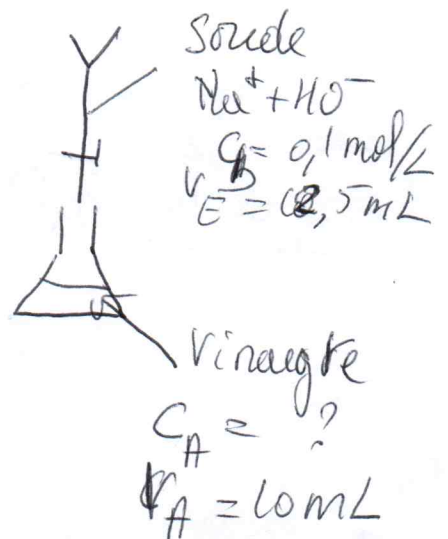 Soude
Na⁺ + HO⁻
C_B = 0,1 mol/L
V_E = 12,5 mL
Vinaigre
C_A = ?
V_A = 10 mL